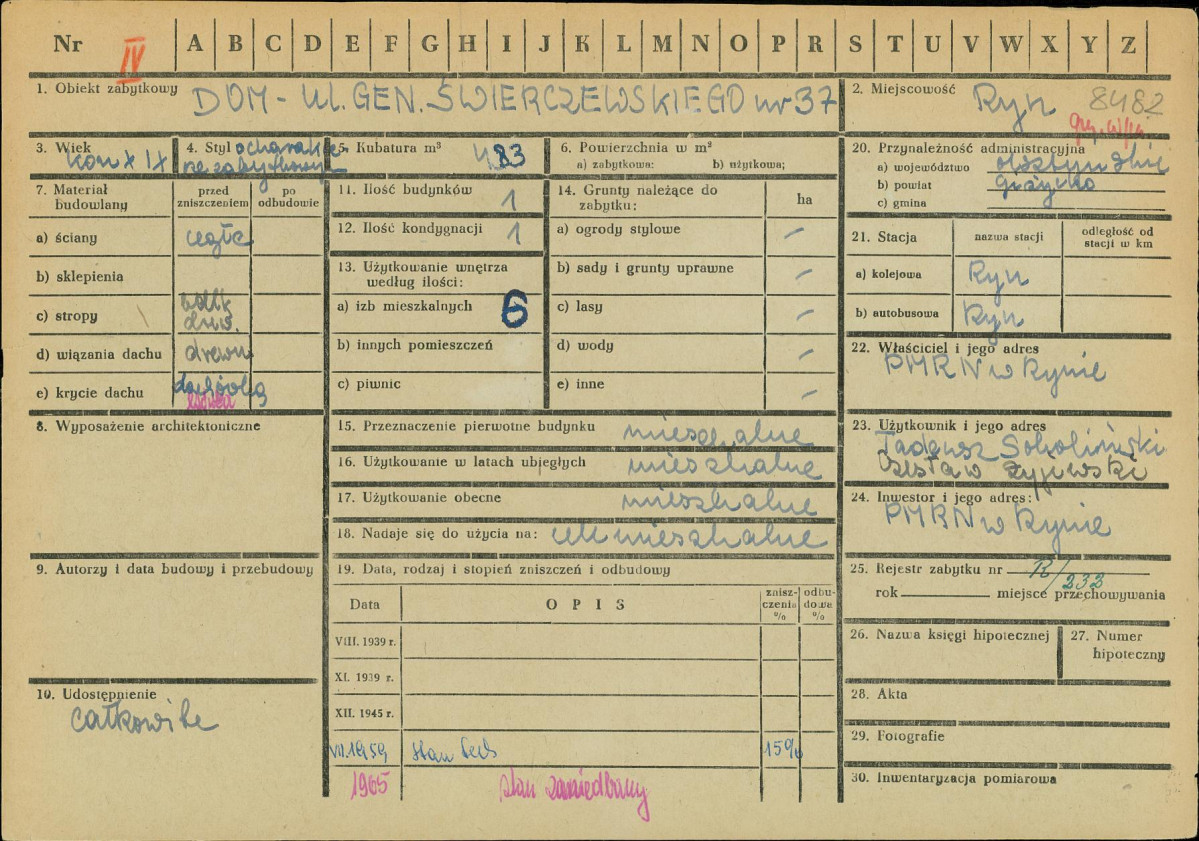 Nr IV A B C D E F G H I J K L M N O P R S T U V W X Y Z
1. Obiekt zabytkowy DOM - Ul. GEN. ŚWIERCZEWSKIEGO nr 37
2. Miejscowość Ryn 8482
3. Wiek kon XIX
4. Styl o charakte
rze zabytkowym
5. Kubatura m³ 483
6. Powierzchnia w m²
a) zabytkowa: b) użytkowa;
7. Materiał budowlany
przed zniszczeniem
po odbudowie
a) ściany cegła
b) sklepienia
c) stropy belk
drew.
d) wiązania dachu drewn
e) krycie dachu dachówka
8. Wyposażenie architektoniczne
9. Autorzy i data budowy i przebudowy
10. Udostępnienie
całkowite
11. Ilość budynków 1
12. Ilość kondygnacji 1
13. Użytkowanie wnętrza
według ilości:
a) izb mieszkalnych 6
b) innych pomieszczeń
c) piwnic
14. Grunty należące do
zabytku:
ha
a) ogrody stylowe –
b) sady i grunty uprawne –
c) lasy –
d) wody –
e) inne –
15. Przeznaczenie pierwotne budynku mieszkalne
16. Użytkowanie w latach ubiegłych mieszkalne
17. Użytkowanie obecne mieszkalne
18. Nadaje się do użycia na: cele mieszkalne
19. Data, rodzaj i stopień zniszczeń i odbudowy
Data OPIS znisz-czenia % odbu-dowa %
VIII. 1939 r.
XI. 1939 r.
XII. 1945 r.
VII.1959 stan tech 15%
1965 stan zaniedbany
20. Przynależność administracyjna
a) województwo olsztyńskie
b) powiat giżycko
c) gmina
21. Stacja nazwa stacji odległość od stacji w km
a) kolejowa Ryn
b) autobusowa Ryn
22. Właściciel i jego adres
PMRN w Rynie
23. Użytkownik i jego adres
Tadeusz Sokoliński
Czesław
24. Inwestor i jego adres:
PMRN w Rynie
25. Rejestr zabytku nr R/232
rok miejsce przechowywania
26. Nazwa księgi hipotecznej
27. Numer
hipoteczny
28. Akta
29. Fotografie
30. Inwentaryzacja pomiarowa